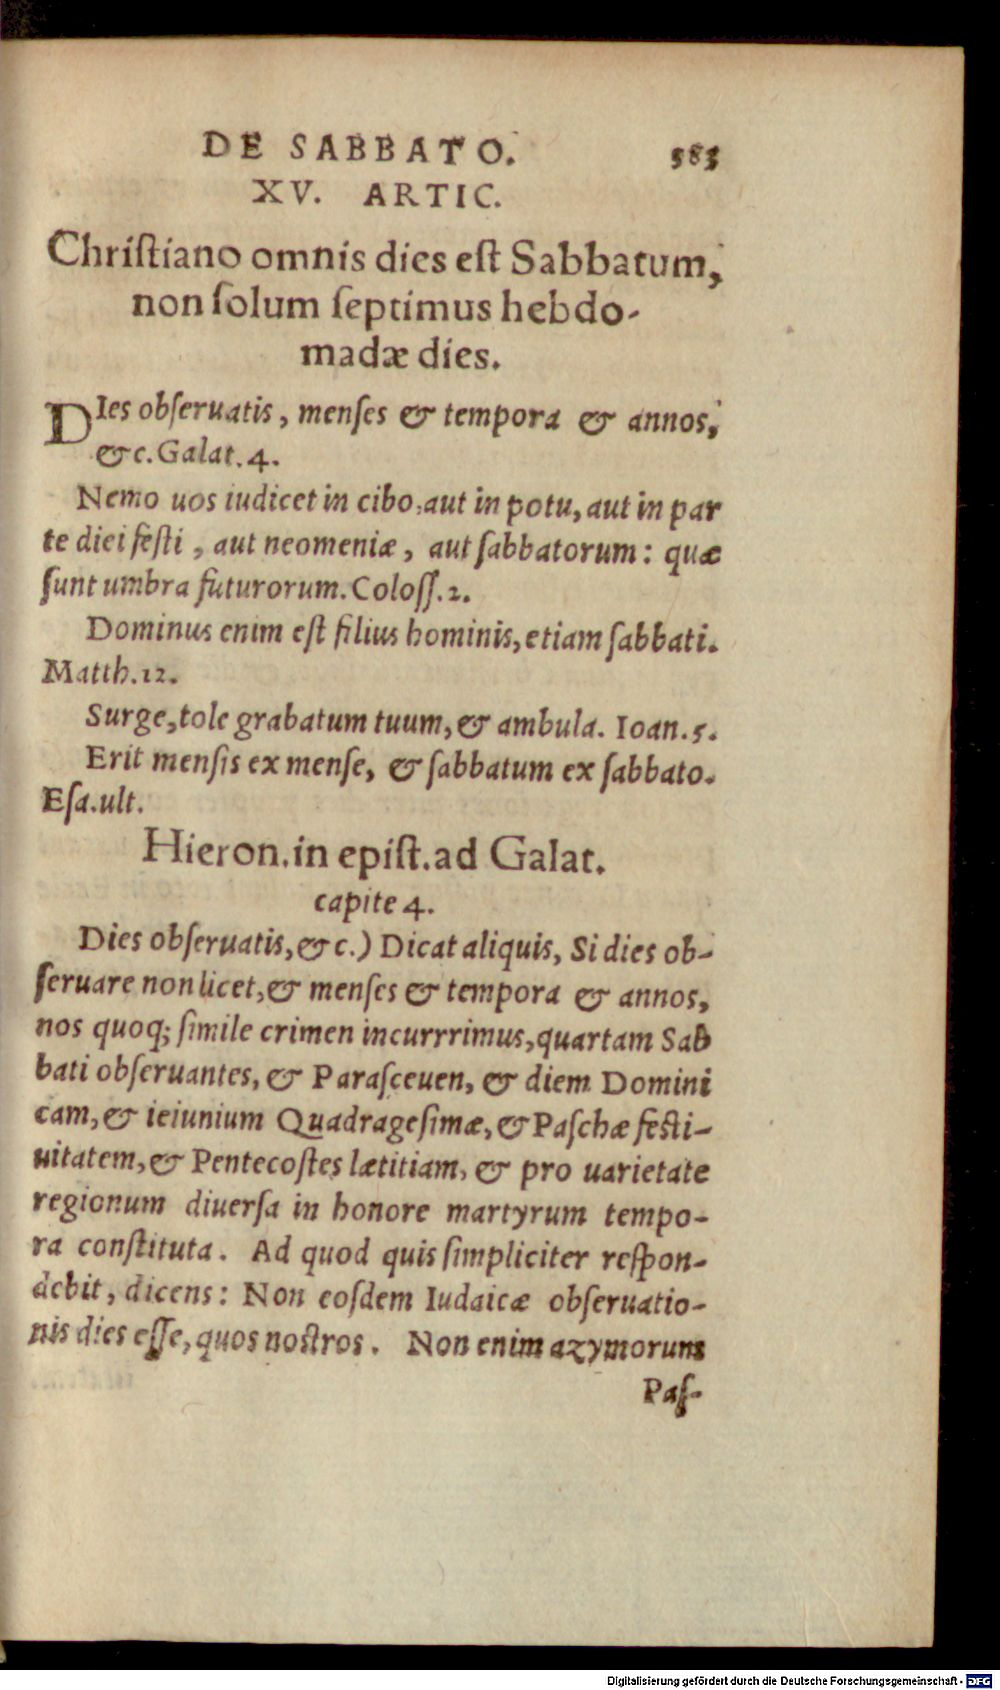 DE SABBATO. 583
XV. ARTIC.
Chriſtiano omnis dies eſt Sabbatum,
non ſolum ſeptimus hebdo-
madæ dies.
DIes obſeruatis, menſes & tempora & annos,
&c. Galat. 4.
Nemo uos iudicet in cibo, aut in potu, aut in par
te diei feſti, aut neomeniæ, aut ſabbatorum: quæ
ſunt umbra futurorum. Coloſſ. 2.
Dominus enim eſt filius hominis, etiam ſabbati.
Matth. 12.
Surge, tole grabatum tuum, & ambula. Ioan. 5.
Erit menſis ex menſe, & ſabbatum ex ſabbato.
Eſa. ult.
Hieron. in epiſt. ad Galat.
capite 4.
Dies obſeruatis, &c.) Dicat aliquis, Si dies ob-
ſeruare non licet, & menſes & tempora & annos,
nos quoq; ſimile crimen incurrrimus, quartam Sab
bati obſeruantes, & Paraſceuen, & diem Domini
cam, & ieiunium Quadrageſimæ, & Paſchæ feſti-
uitatem, & Pentecoſtes lætitiam, & pro uarietate
regionum diuerſa in honore martyrum tempo-
ra conſtituta. Ad quod quis ſimpliciter reſpon-
debit, dicens: Non eoſdem Iudaicæ obſeruatio-
nis dies eſſe, quos noſtros. Non enim azymorum
Paſ-
Digitalisierung gefördert durch die Deutsche Forschungsgemeinschaft - DFG